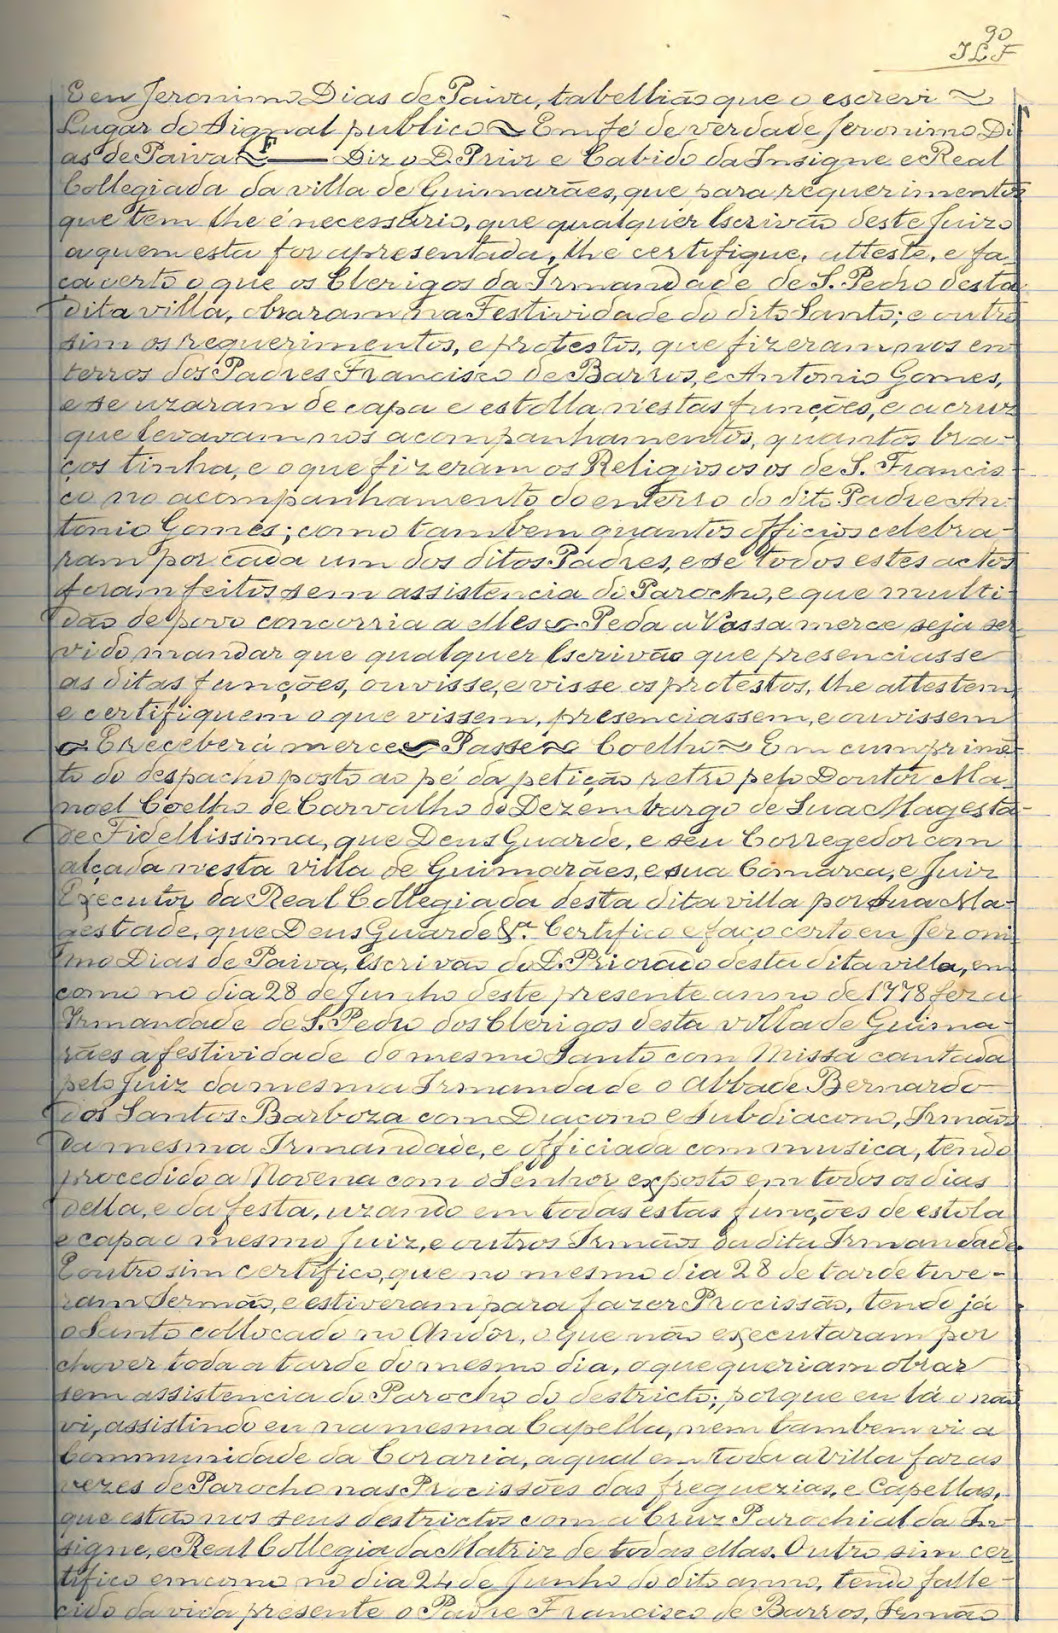 90
JLF
E eu Jeronimo Dias de Paiva, tabellião que o escrevi ~
Lugar do Signal publico ~ Em fé de verdade Jeronimo Di
as de Paiva ~ F —— Diz o D. Prior e Cabido da Insigne e Real
Collegiada da villa de Guimarães, que para requerimentos
que tem lhe é necessario, que qualquer Escrivão deste Juizo
a quem esta for apresentada, lhe certifique, atteste, e fa-
ça certo o que os Clerigos da Irmandade de S. Pedro desta
dita villa, obraram na Festividade do dito Santo; e outro
sim os requerimentos, e protestos, que fizeram nos en
terros dos Padres Francisco de Barros, e Antonio Gomes,
e se uzaram de capa e estolla n'estas funções, e a cruz
que levavam nos acompanhamentos, quantos bra-
ços tinha, e o que fizeram os Religiosos os de S. Francis-
co no acompanhamento do enterro do dito Padre An-
tonio Gomes; como tambem quantos officios celebra-
ram por cada um dos ditos Padres, e se todos estes actos
foram feitos sem assistencia do Parocho, e que multi-
dão de povo concorria a elles ~ Peda a Vossa merce seja ser
vido mandar que qualquer Escrivão que presenciasse
as ditas funções, ouvisse, e visse os protestos, lhe attestem,
e certifiquem o que vissem, presenciassem, e ouvissem
~ E receberá merce ~ Passe ~ Coelho ~ Em cumprimẽ-
to do despacho posto ao pé da petição retro pelo Doutor Ma-
noel Coelho de Carvalho do Dezembargo de Sua Magesta-
de Fidellissima, que Deus Guarde, e seu Corregedor com
alçada nesta villa de Guimarães, e sua Comarca, e Juiz
Executor da Real Collegiada desta dita villa por Sua Ma-
gestade, que Deus Guarde &.ª Certifico e faço certo eu Jeroni
mo Dias de Paiva, Escrivão do D. Priorado desta dita villa, em
como no dia 28 de Junho deste presente anno de 1778 fez a
Irmandade de S. Pedro dos Clerigos desta villa de Guima-
rães a festividade do mesmo Santo com Missa cantada
pelo Juiz da mesma Irmandade o Abbade Bernardo
dos Santos Barboza com Diacono e Subdiacono, Irmãos
da mesma Irmandade, e officiada com musica, tendo
procedido a Novena com o Senhor exposto em todos os dias
della, e da festa, uzando em todas estas funções de estola
e capa o mesmo Juiz, e outros Irmãos da dita Irmandade.
E outro sim certifico, que no mesmo dia 28 de tarde tive-
ram Sermão, e estiveram para fazer Procissão, tendo já
o Santo collocado no Andor, o que não executaram por
chover toda a tarde do mesmo dia, o que queriam obrar
sem assistencia do Parocho do destricto; porque eu lá o não
vi, assistindo eu na mesma Capella, nem tambem vi a
Communidade da Coraria, a qual em toda a Villa faz as
vezes de Parocho nas Procissões das freguezias, e Capellas,
que estão nos seus destrictos com a Cruz Parochial da In-
signe, e Real Collegiada Matriz de todas ellas. Outro sim cer
tifico em como no dia 24 de Junho do dito anno, tendo falle-
cido da vida presente o Padre Francisco de Barros, Irmão